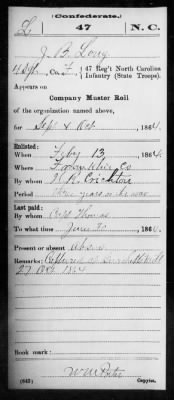 (Confederate.)
L 47 N.C.
J. B. Long
Co. F, 47 Reg't North Carolina
Infantry (State Troops).
Appears on
Company Muster Roll
of the organization named above,
for Sept & Oct, 1864.
Enlisted:
When Feby 13, 1864.
Where Franklin Co
By
Period three years or the war
Last paid:
By Capt Thomas
To what time June 30, 1864.
Present or absent Absent
Remarks: Captured at Burgess Mill
27 Oct 1864
Book mark:
(642) Copyist.